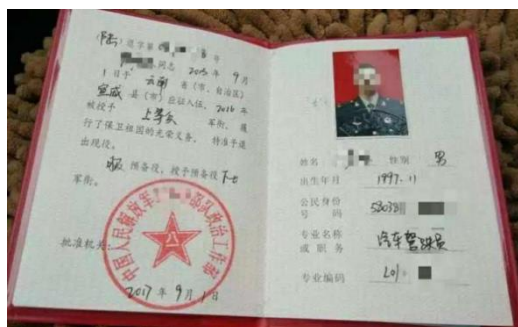 (陆)退字第 号
同志 2015 年 9 月
1 日于 云南 省(市、自治区)
宣威 县(市)应征入伍, 2016 年
被授予 上等兵 军衔, 履
行了保卫祖国的光荣义务, 特准予退
出现役。
服 预备役, 授予预备役 下士
军衔。
中国人民解放军 部队政治工作部
批准机关:
2017 年 9 月 1 日
姓名 性别 男
出生年月 1997.11
公民身份
号 码 53038
专业名称
或 职 务 汽车驾驶员
专业编码 201